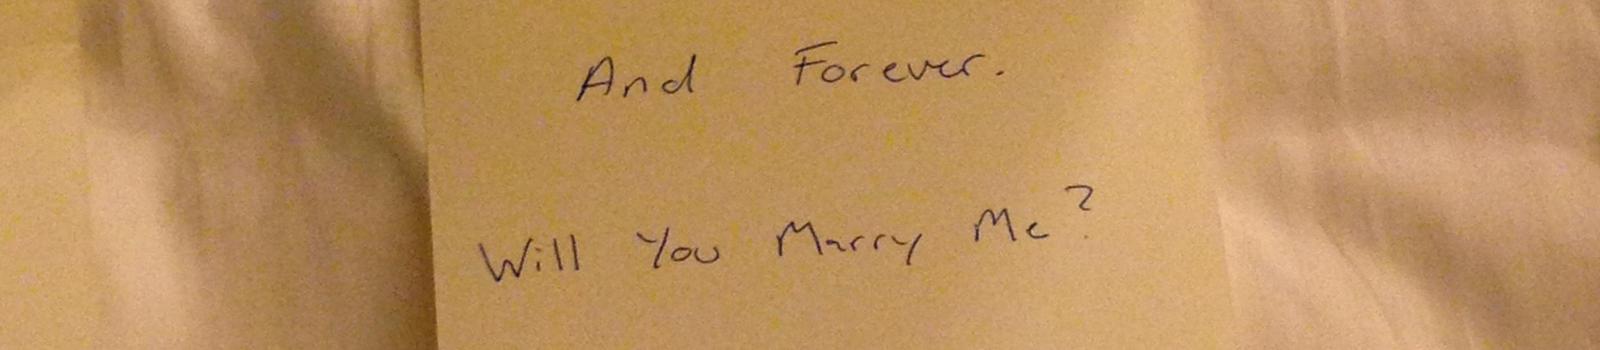 And Forever.
Will You Marry Me?